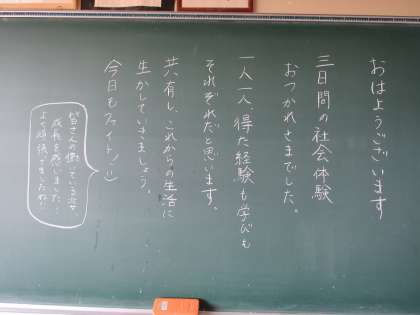 おはようございます
三日間の社会体験
おつかれさまでした。
一人一人、得た経験も学びも
それぞれだと思います。
共有し、これからの生活に
生かしていきましょう。
今日もファイト！
皆さんの働いている姿
成長を感じました！
よく頑張りましたね!!